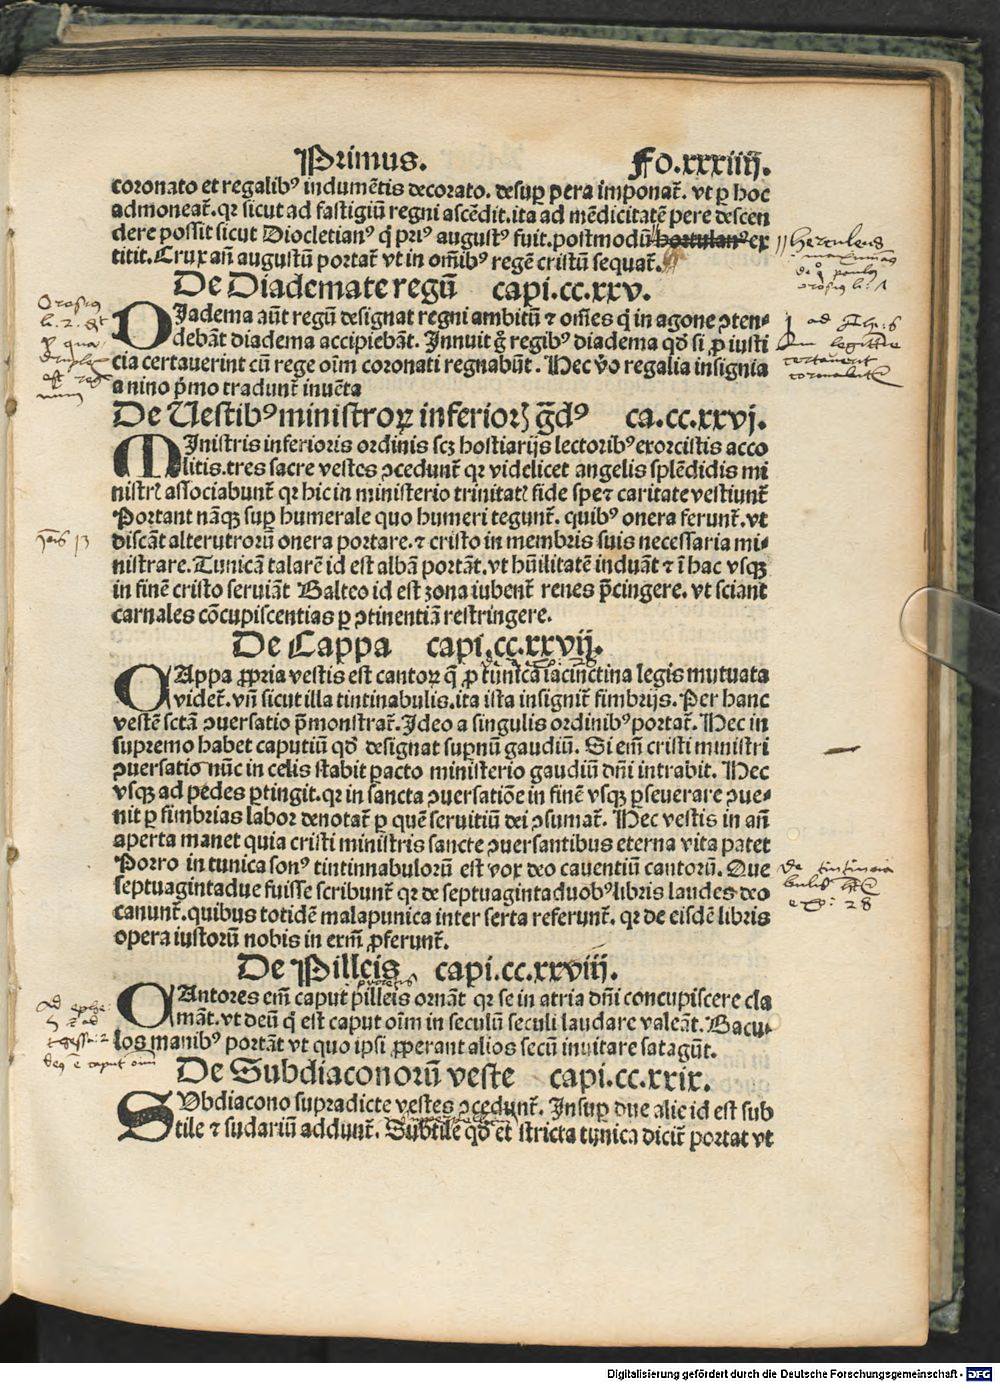 Primus. Fo.xxxiiij.
coronato et regalibꝰ indumētis decorato. desuꝑ pera imponat̄. vt ꝑ hoc
admoneat̄. qꝛ sicut ad fastigiū regni ascēdit. ita ad mēdicitatē pere descen
dere possit sicut Diocletianꝰ q̇ priꝰ augustꝰ fuit. postmodū hortulanꝰ ex
titit. Crux añ augustū portat̄ vt in om̄ibꝰ regē cristū sequat̄.
De Diademate regū capi.cc.xxv.
DJadema aūt regū designat regni ambitū ⁊ om̄es q̇ in agone ↄten⸗
debāt diadema accipiebāt. Innuit g̊ regibꝰ diadema qð si ꝓ iusti
cia certauerint cū rege oīm coronati regnabūt. Hec v̊o regalia insignia
a nino p̄mo tradunt̄ inuēta
De Vestibꝰ ministroꝝ inferioꝝ g̊dꝰ ca.cc.xxvj.
MJnistris inferioris ordinis scꝫ hostiarijs lectoribꝰ exorcistis acco
litis. tres sacre vestes ↄcedunt̄ qꝛ videlicet angelis splēdidis mi
nistrꝭ associabunt̄ qꝛ hic in ministerio trinitatꝭ fide spe ⁊ caritate vestiunt̄
Portant nāqꝫ suꝑ humerale quo humeri tegunt̄. quibꝰ onera ferunt̄. vt
discāt alterutrorū onera portare. ⁊ cristo in membris suis necessaria mi⸗
nistrare. Tunicā talarē id est albā portāt. vt hūilitatē induāt ⁊ ī hac vsqꝫ
in finē cristo seruiāt Balteo id est zona iubent̄ renes p̄cingere. vt sciant
carnales cōcupiscentias ꝑ ↄtinentiā restringere.
De Cappa capi.cc.xxvij.
CAppa ꝓpria vestis est cantoꝝ q̄ ꝓ tunica iacinctina legis mutuata
videt̄. vñ sicut illa tintinabulis. ita ista insignit̄ fimbrijs. Per hanc
vestē sctā ↄuersatio p̄monstrat̄. Ideo a singulis ordinibꝰ portat̄. Hec in
supremo habet caputiū qð designat suꝑnū gaudiū. Si em̄ cristi ministri
ↄuersatio nūc in celis stabit pacto ministerio gaudiū dñi intrabit. Hec
vsqꝫ ad pedes ꝑtingit. qꝛ in sancta ↄuersatiōe in finē vsqꝫ ꝑseuerare ↄue⸗
nit ꝑ fimbrias labor denotat̄ ꝑ quē seruitiū dei ↄsumat̄. Hec vestis in añ
aperta manet quia cristi ministris sancte ↄuersantibus eterna vita patet
Porro in tunica sonꝰ tintinnabulorū est vox deo caventiū cantorū. Que
septuagintadue fuisse scribunt̄ qꝛ de septuagintaduobꝰ libris laudes deo
canunt̄. quibus totidē malapunica inter serta referunt̄. qꝛ de eisdē libris
opera iustorū nobis in exm̄ ꝓferunt̄.
De Pilleis capi.cc.xxviij.
CAntores em̄ caput pilleis ornāt qꝛ se in atria dñi concupiscere cla
māt. vt deū q̇ est caput oīm in seculū seculi laudare valeāt. Bacu⸗
los manibꝰ portāt vt quo ipsi ꝓperant alios secū inuitare satagūt.
De Subdiaconorū veste capi.cc.xxix.
SVbdiacono supradicte vestes ↄcedunt̄. Insuꝑ due alie id est sub
tile ⁊ sudariū addunt̄. Subtile qð et stricta tunica dicit̄ portat vt
herculeus
orosius li: 7
Orosius
li. 2.
ad Th: 6
legittime
certaverit
coronabitur
heb 13
de tintinna
bulis
exo: 28
ad ephe:
caput om̄
Digitalisierung gefördert durch die Deutsche Forschungsgemeinschaft - DFG